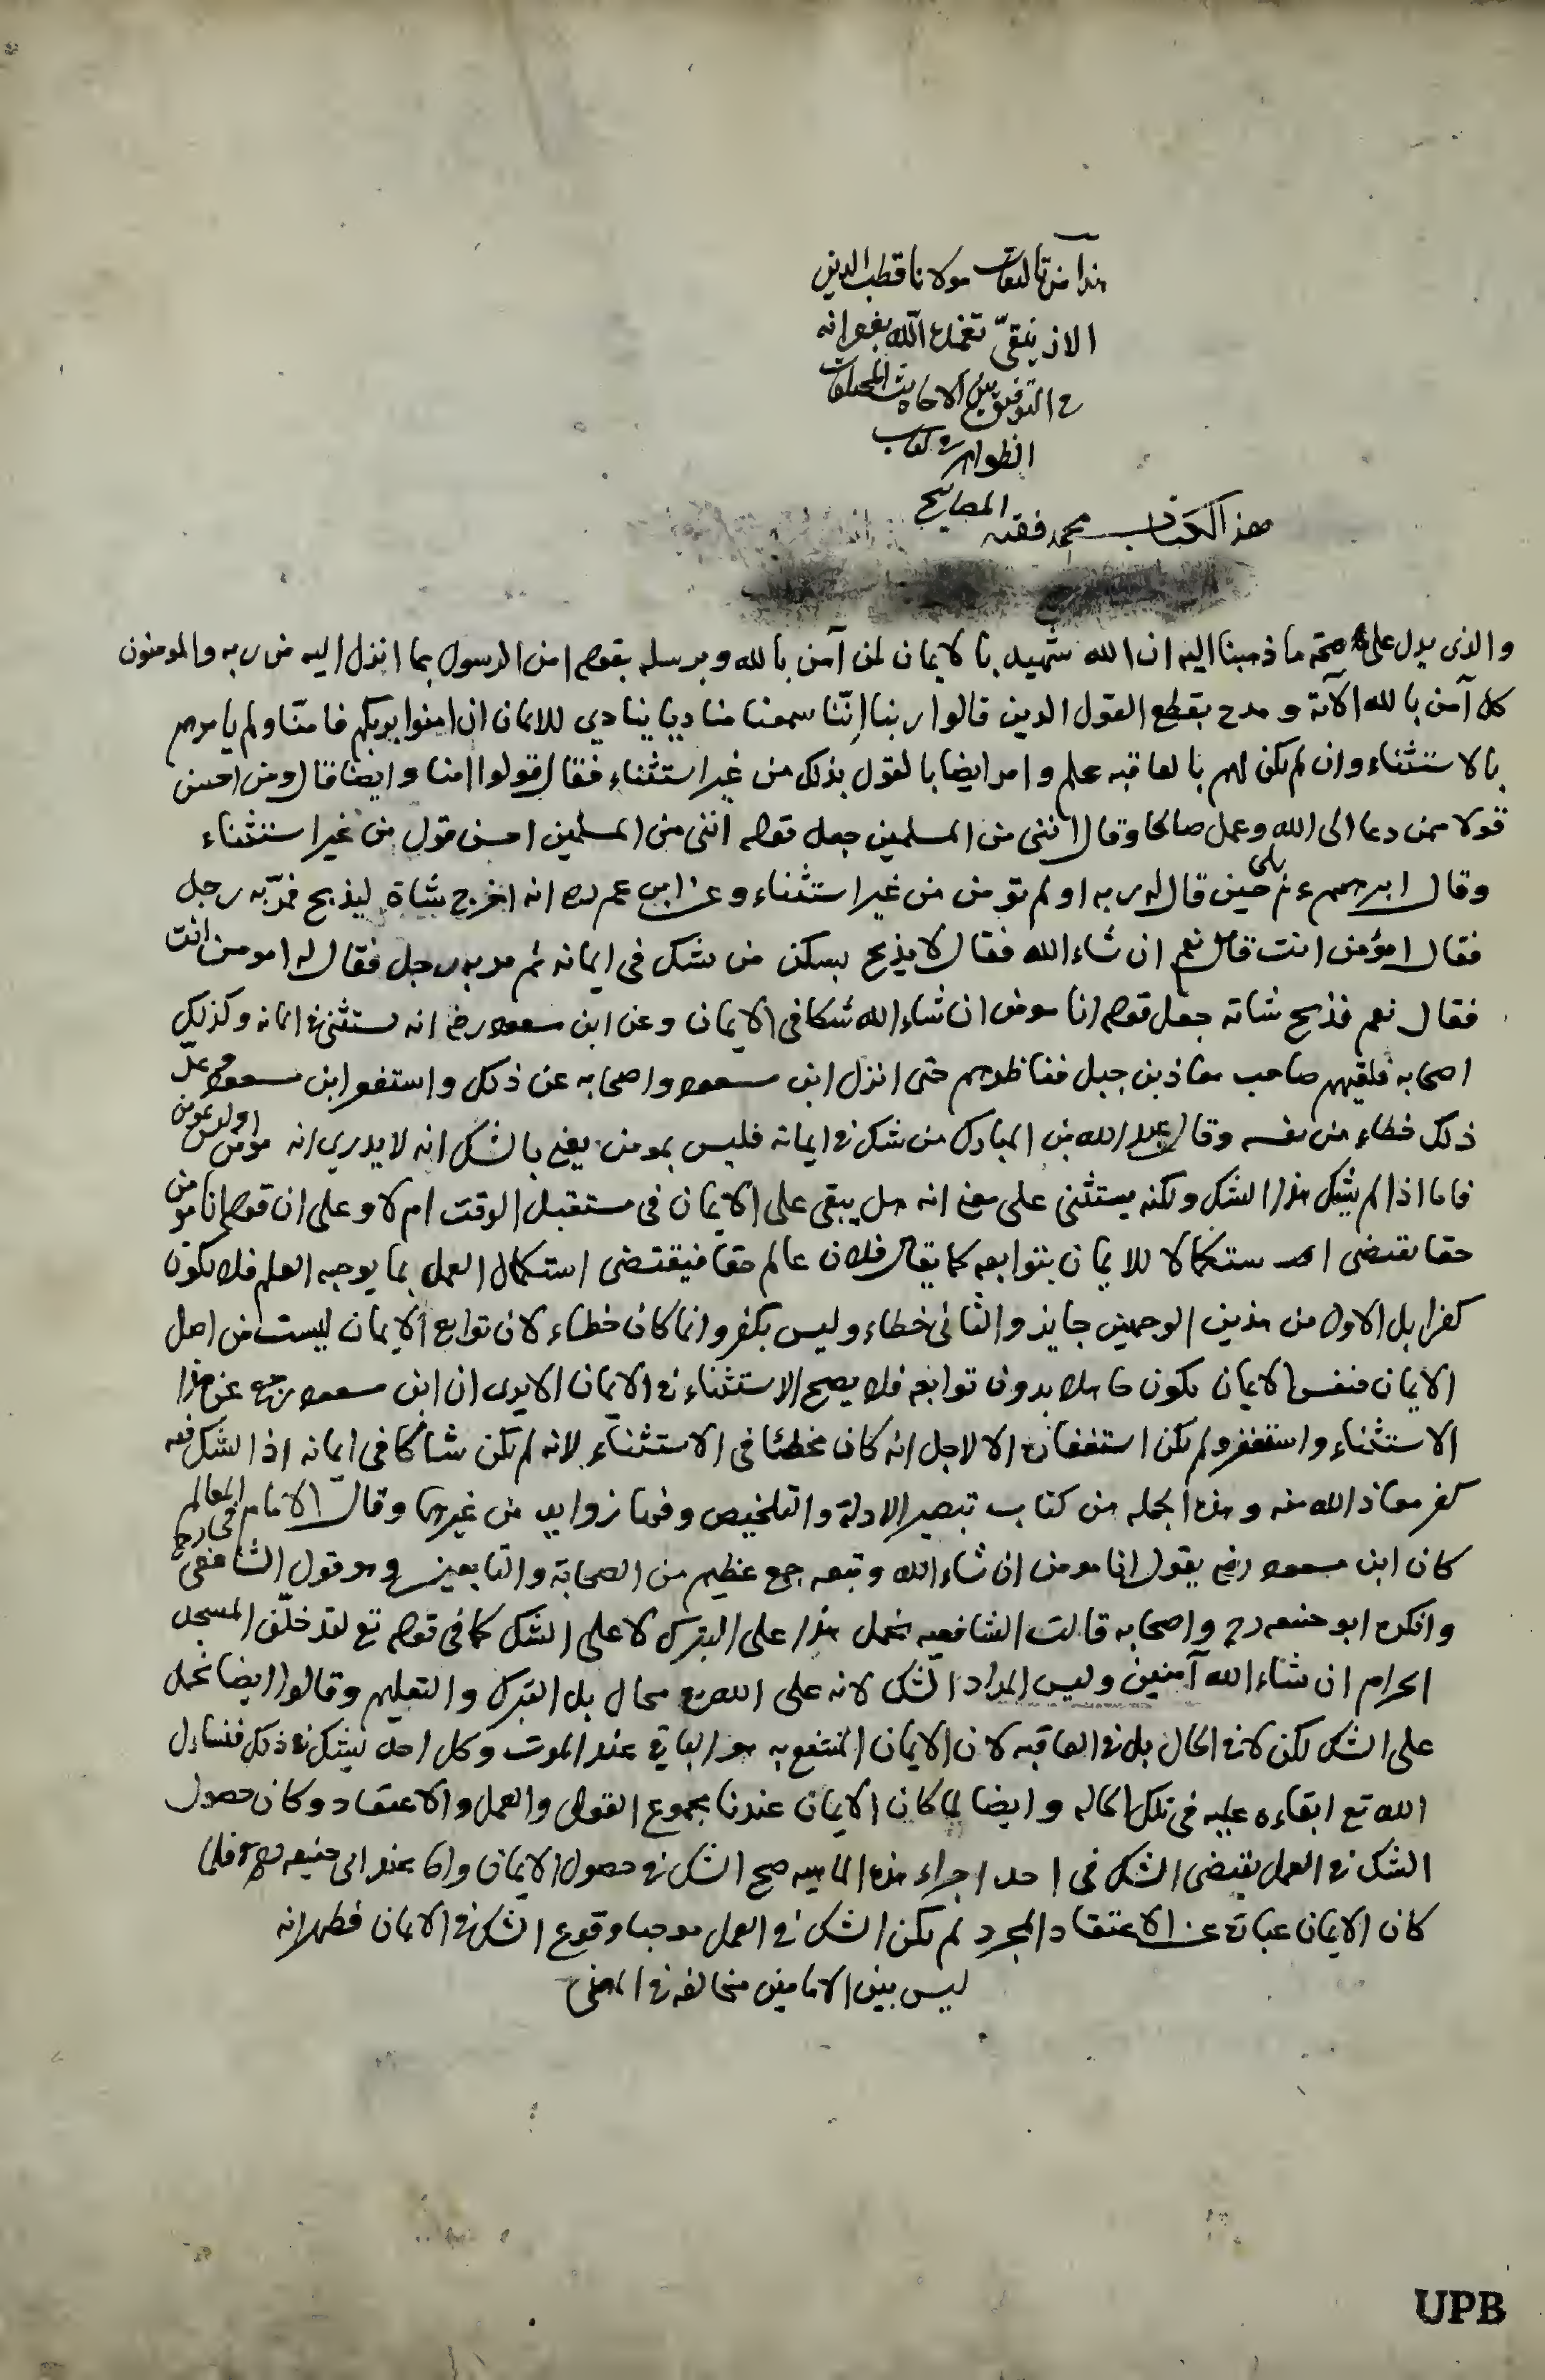 هذا من تاليفات مولانا قطب الدين
الازنيقىّ تغمده اللّٰه بغفرانه
فى التوفيق بين الاحاديث المختلفات
الظواهر فى كتاب
المصابيح
هذ الكتاب محمد فقيه
والذى يدل على صحّة ما ذهبنا اليه ان الله شهد بالايمان لمن آمن بالله وبرسله بقوله امن الرسول بما انزل اليه من ربه والمومنون
كل آمن بالله الآية ومدح بقطع القول الذين قالوا ربنا اِنّنا سمعنا مناديا ينادي للايمان ان امنوا بربكم فامنّا ولم يامرهم
بالاستثناء وان لم يكن لهم بالعاقبه علم وامر ايضا بالقول بذلك من غير استثناء فقال قولوا امنا وايضا قال ومن احسن
قولا ممن دعا الى الله وعمل صالحا وقال انّنى من المسلمين جعل قوله انّنى من المسلمين احسن قول من غير استثناء
وقال ابرهيم ءم بلى حين قال له ربه اولم تؤمن من غير استثناء وعن ابن عمر رض انه اخرج شاة ليذبح فمرّ به رجل
فقال امؤمن انت قال نعم ان شاء الله فقال لا يذبح بسكين من شك فى ايمانه ثم مر به رجل فقال له امومن انت
فقال نعم فذبح شاته جعل قوله انا مومن ان شاء الله شكا فى الايمان وعن ابن مسعود رض انه يستثنى فى ايمانه وكذلك
اصحابه فلقيهم صاحب معاذ بن جبل فناظرهم حتى انزل ابن مسعود واصحابه عن ذلك واستغفر ابن مسعود وعدّ
ذلك خطاء من نفسه وقال عبد الله بن المبارك من شك فى ايمانه فليس بمومن يعنى بالشك انه لا يدري انه مومن او ليس بمومن
فاما اذا لم يشك هذا الشك ولكنه يستثنى على معنى انه هل يبقى على الايمان فى مستقبل الوقت ام لا وعلى ان قوله انا مومن
حقا يقتضى استكمالا للايمان بتوابعه كما يقال فلان عالم حقا فيقتضى استكمال العمل بما يوجبه العلم فلا يكون
كفرا بل الاول من هذين الوجهين جايز والثانى خطاء وليس بكفر وانما كان خطاء لان توابع الايمان ليست من اصل
الايمان فنفس الايمان يكون حاصلا بدون توابعه فلا يصح الاستثناء فى الايمان الا يرى ان ابن مسعود رجع عن هذا
الاستثناء واستغفر ولم يكن استغفاره الا لاجل انه كان مخطئا فى الاستثناء لانه لم يكن شاكا فى ايمانه اذ الشك فيه
كفر معاذ الله منه وهذه الجمله من كتاب تبصير الادلة والتلخيص وفيها زوايد من غيرهما وقال الامام فى المعالم
كان ابن مسعود رض يقول انا مومن ان شاء الله وتبعه جمع عظيم من الصحابة والتابعين وهو قول الشافعى رح
وانكره ابو حنيفه رح واصحابه قالت الشافعيه نحمل هذا على التبرك لا على الشك كما فى قوله تع لتدخلنّ المسجد
الحرام ان شاء الله آمنين وليس المراد الشك لانه على الله تع محال بل التبرك والتعليم وقالوا ايضا نحمل
على الشك لكن لا فى الحال بل فى العاقبه لان الايمان المنتفع به هو الباقى عند الموت وكل احد يشك فى ذلك فنسأل
الله تع ابقاءه عليه فى تلك الحاله وايضا لما كان الايمان عندنا مجموع القول والعمل والاعتقاد وكان حصول
الشك فى العمل يقتضى الشك فى احد اجزاء هذه الماهيه صح الشك فى حصول الايمان واما عند ابى حنيفه رح فلما
كان الايمان عبارة عن الاعتقاد المجرد لم يكن الشك فى العمل موجبا وقوع الشك فى الايمان فظهر انه
ليس بين الامامين مخالفه فى المعنى
UPB